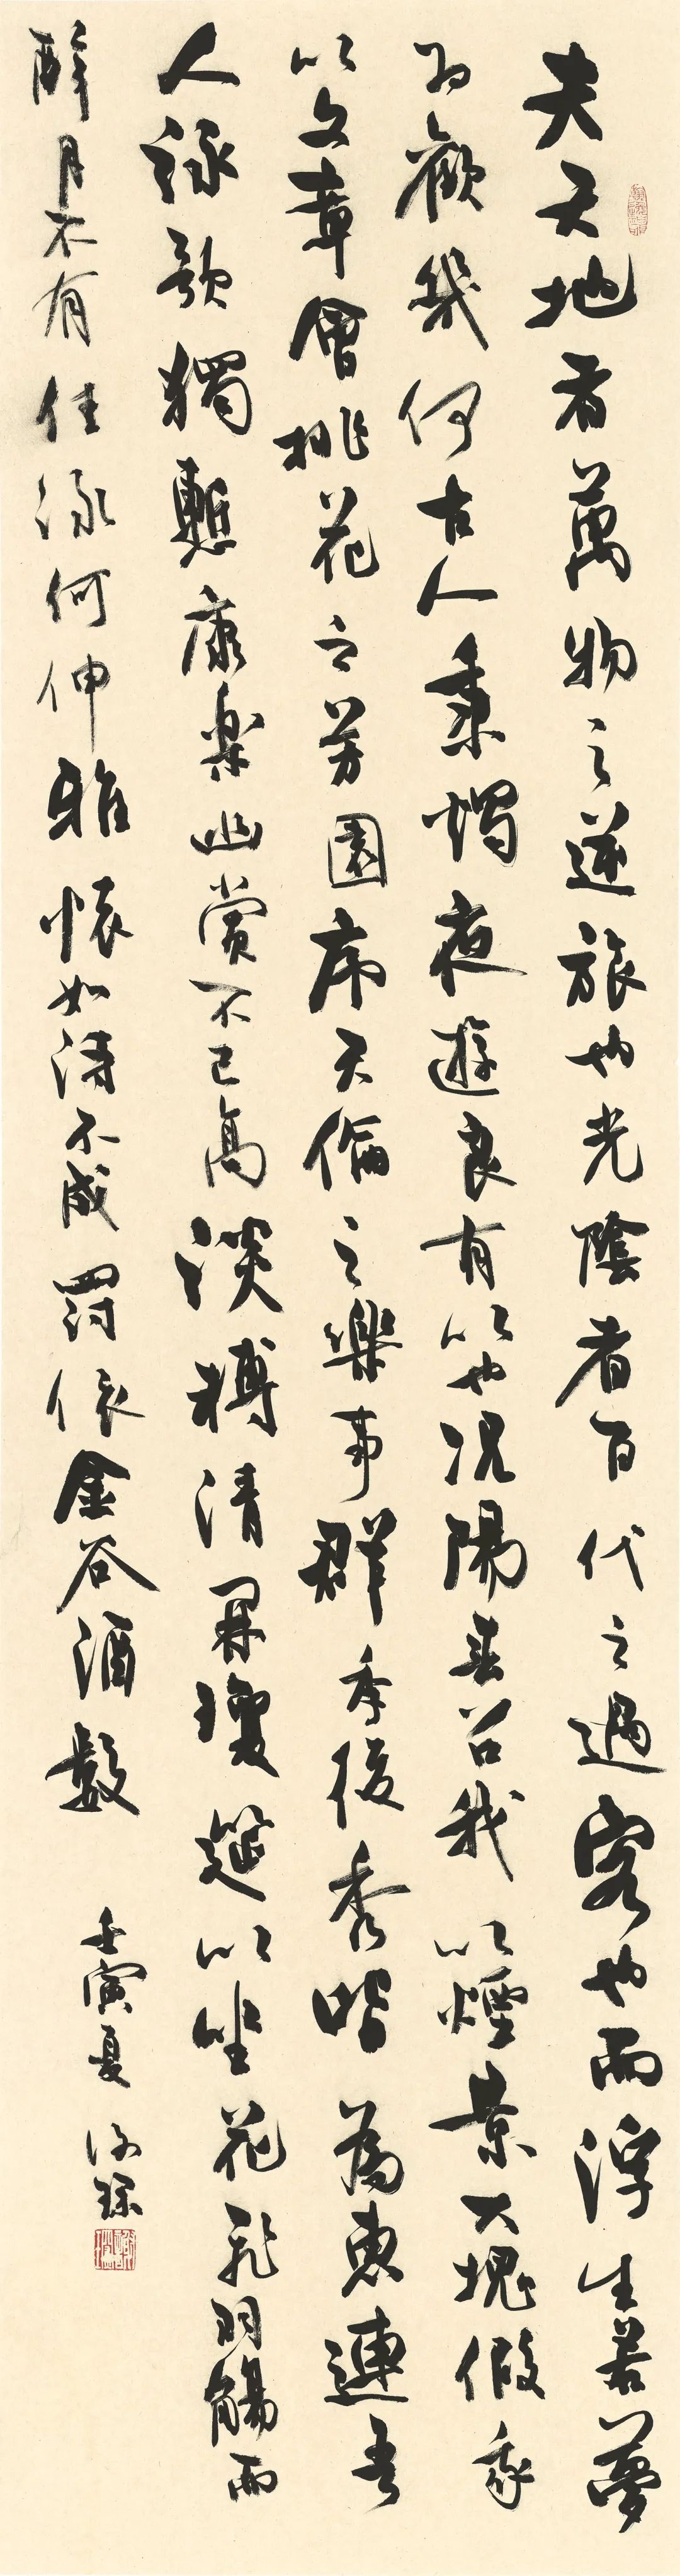 夫天地者萬物之逆旅也光陰者百代之過客也而浮生若夢
为歡幾何古人秉燭夜遊良有以也況陽春召我以煙景大塊假我
以文章會桃花之芳園序天倫之樂事群季俊秀皆為惠連吾
人詠歌獨慙康楽幽賞不已高談轉清開瓊筵以坐花飛羽觴而
醉月不有佳詠何伸雅懷如詩不成罰依金谷酒數
壬寅夏